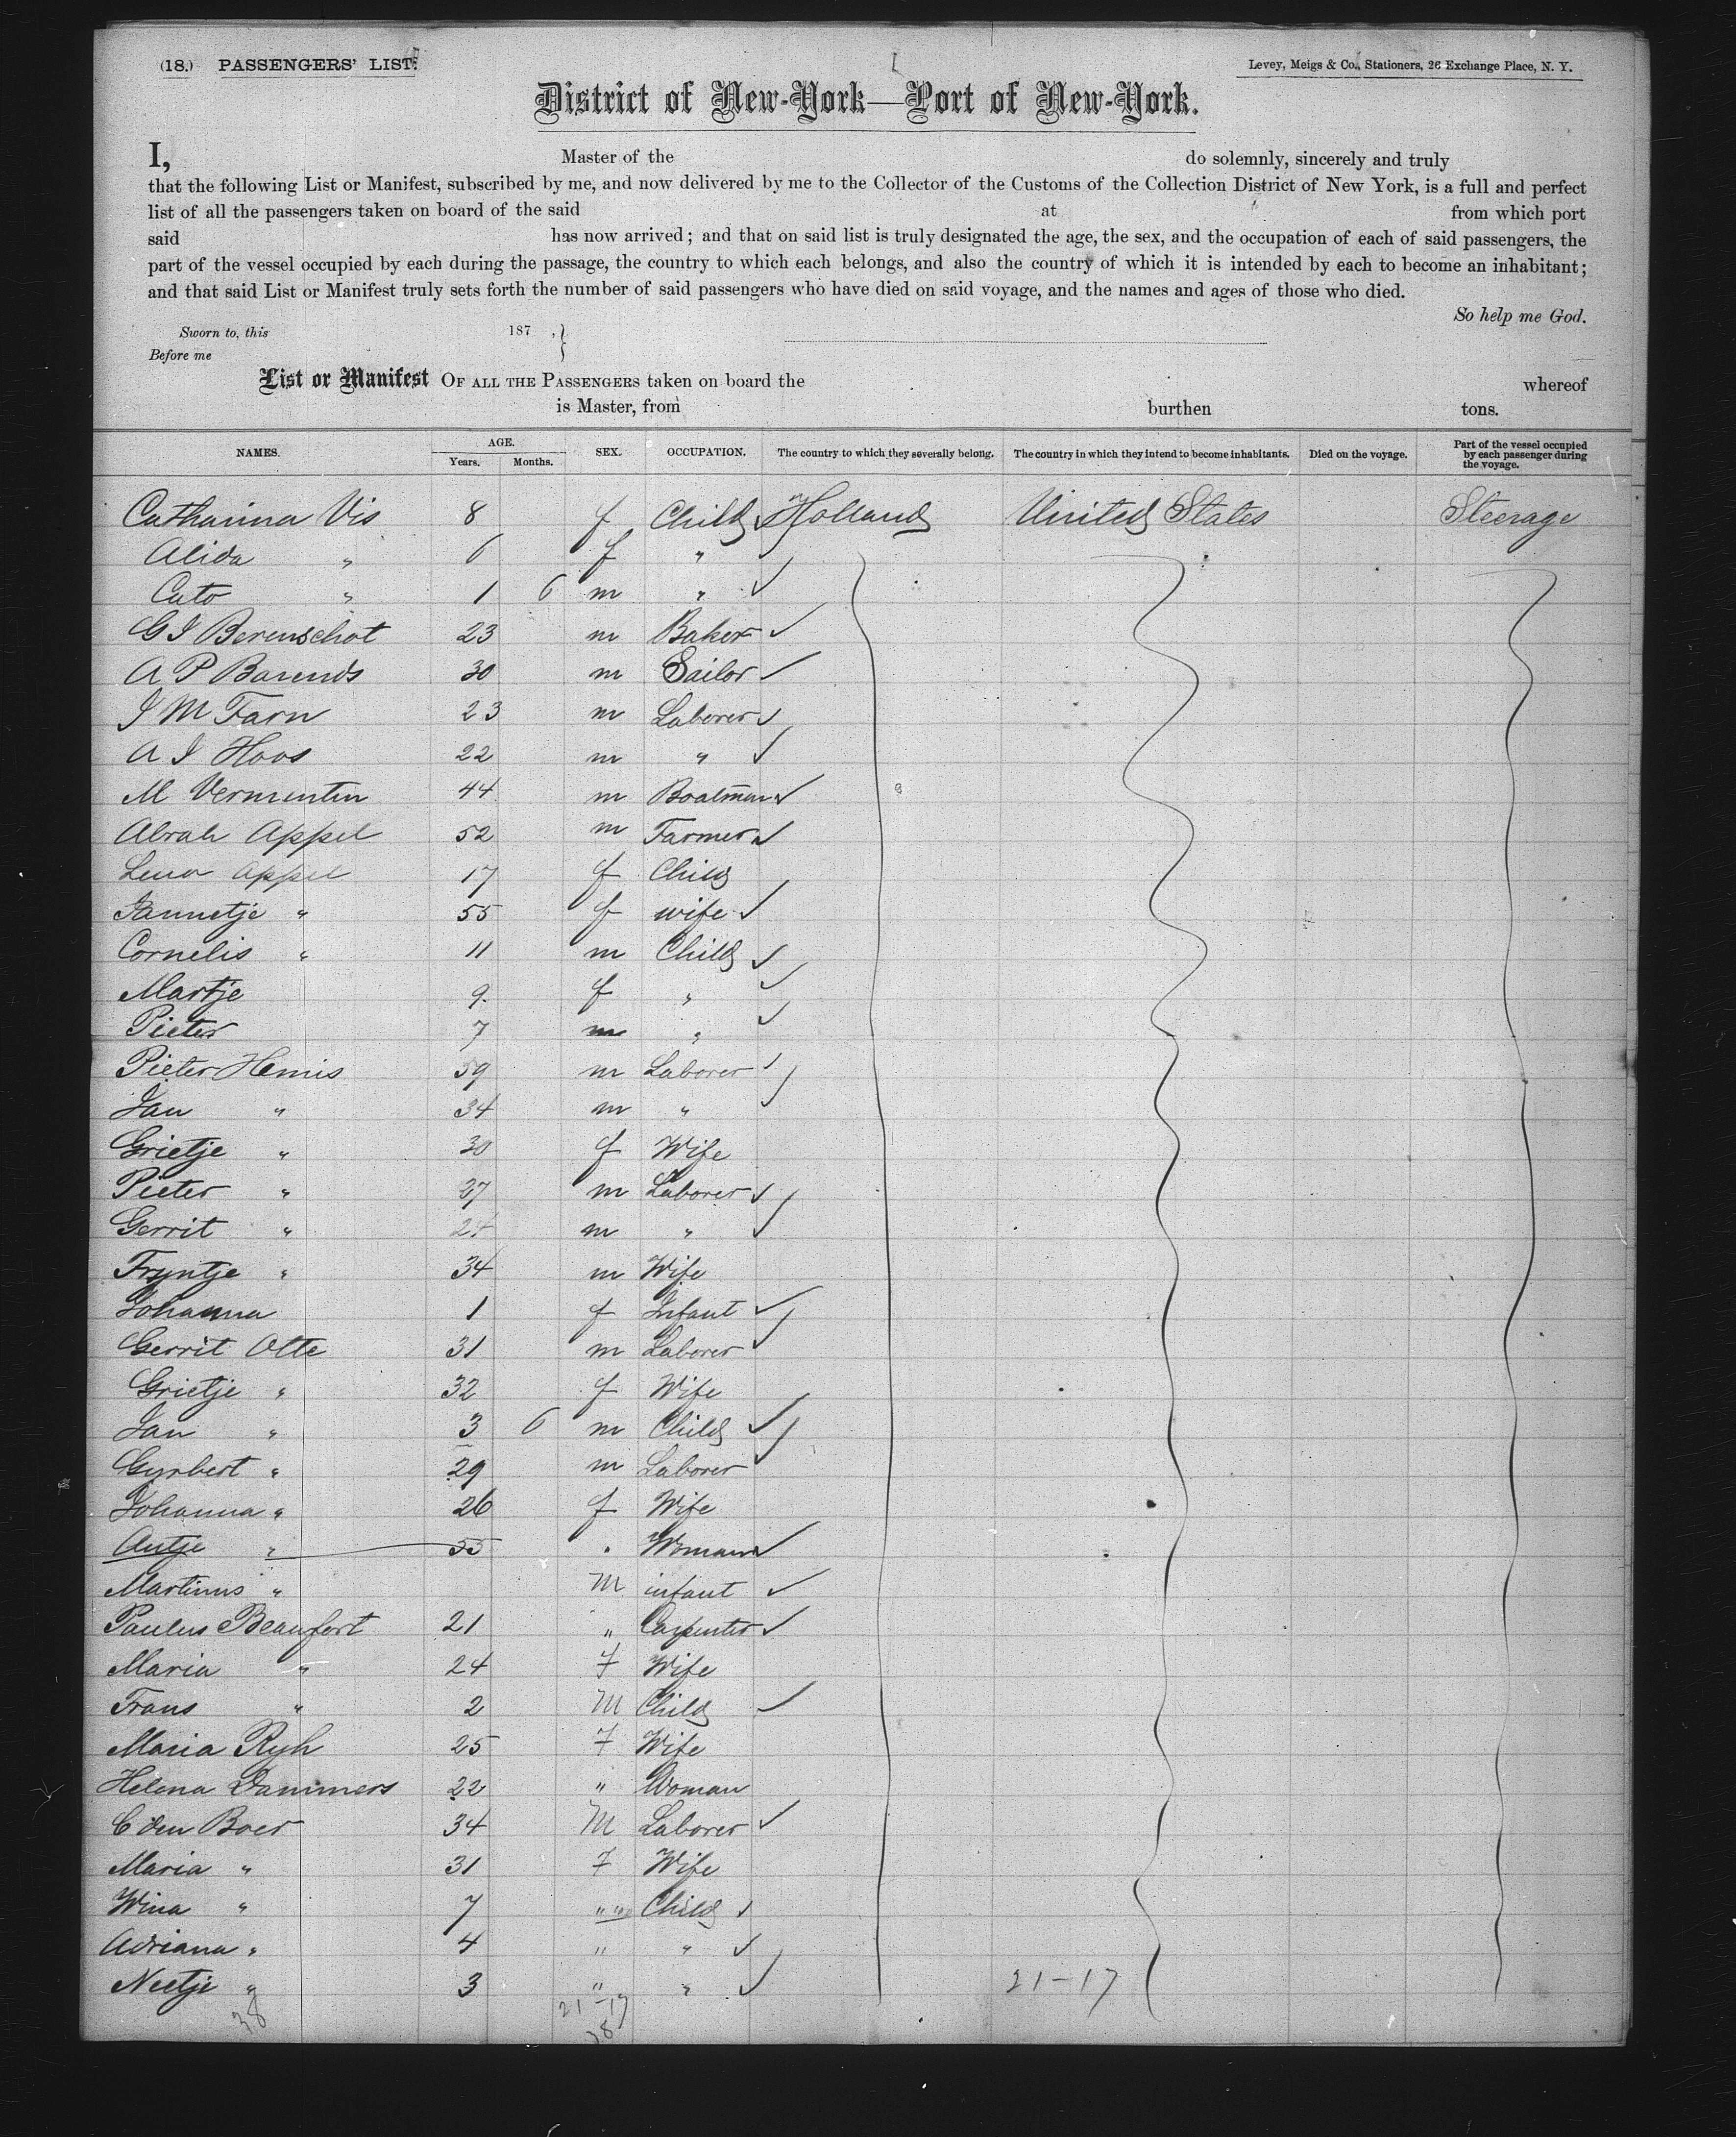 (18.) PASSENGERS' LIST.
Levey, Meigs & Co., Stationers, 26 Exchange Place, N. Y.
District of New-York—Port of New-York.
I, Master of the do solemnly, sincerely and truly
that the following List or Manifest, subscribed by me, and now delivered by me to the Collector of the Customs of the Collection District of New York, is a full and perfect
list of all the passengers taken on board of the said at from which port
said has now arrived; and that on said list is truly designated the age, the sex, and the occupation of each of said passengers, the
part of the vessel occupied by each during the passage, the country to which each belongs, and also the country of which it is intended by each to become an inhabitant;
and that said List or Manifest truly sets forth the number of said passengers who have died on said voyage, and the names and ages of those who died.
So help me God.
Sworn to, this 187 , }
Before me
List or Manifest OF ALL THE PASSENGERS taken on board the whereof
is Master, from burthen tons.
NAMES. AGE. Years. Months. SEX. OCCUPATION. The country to which they severally belong. The country in which they intend to become inhabitants. Died on the voyage. Part of the vessel occupied by each passenger during the voyage.
Catharina Vis 8 f Child Holland United States Steerage
Alida " 6 f "
Cato " 1 6 m "
G I Berenschot 23 m Baker
A P Barends 30 m Sailor
I M Farn 23 m Laborer
A I Hoos 22 m "
M Vermenten 44 m Boatman
Abrah Appel 52 m Farmer
Lena Appel 17 f Child
Jannetje " 55 f wife
Cornelis " 11 m Child
Martje 9 f "
Pieter 7 m "
Pieter Hemis 59 m Laborer
Jan " 34 m "
Grietje " 30 f Wife
Pieter " 27 m Laborer
Gerrit " m "
Tryntje " 34 m Wife
Johanna 1 f Infant
Gerrit Otte 31 m Laborer
Grietje " 32 f Wife
Jan " 3 6 m Child
Gysbert " 29 m Laborer
Johanna " 26 f Wife
Antje " 55 " Woman
Martinus " M infant
Paulus Beaufort 21 " Carpenter
Maria " 24 F Wife
Frans " 2 M Child
Maria Ryh 25 F Wife
Helena Dammers 22 " Woman
C den Boer 34 M Laborer
Maria " 31 F Wife
Wina " 7 " Child
Adriana " 4 " "
Neetje " 3 " " 21-17
38 21-17
38